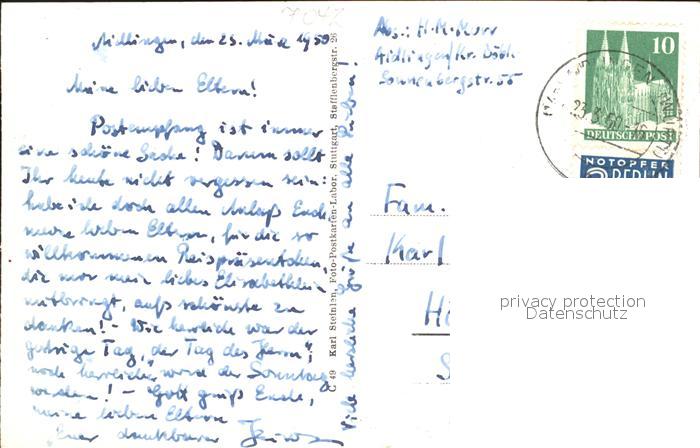 7042
Aidlingen, den 23. März 1950
Meine lieben Eltern!
Postempfang ist immer
eine schöne Sache! Darum sollt
Ihr heute nicht vergessen sein:
habe ich doch allen Anlaß Euch,
meine lieben Eltern, für die so
willkommenen
die mir mein liebes
mitbringt, aufs schönste zu
danken! - Wie herrlich war der
gestrige Tag, der Tag des Herrn",
noch herrlicher wird der Sonntag
werden! - Gott grüß Euch,
meine lieben Eltern
Euer dankbarer
Viele herzliche Grüße an alle Lieben!
C 49 Karl Steinlen, Foto-Postkarten-Labor, Stuttgart, Stafflenbergstr. 26
Abs.: H. M.
Aidlingen/Kr. Böbl.
Sonnenbergstr. 55
10
DEUTSCHE POST
NOTOPFER
2 BERLIN
23.3.50.-16
Fam.
Karl
privacy protection
Datenschutz